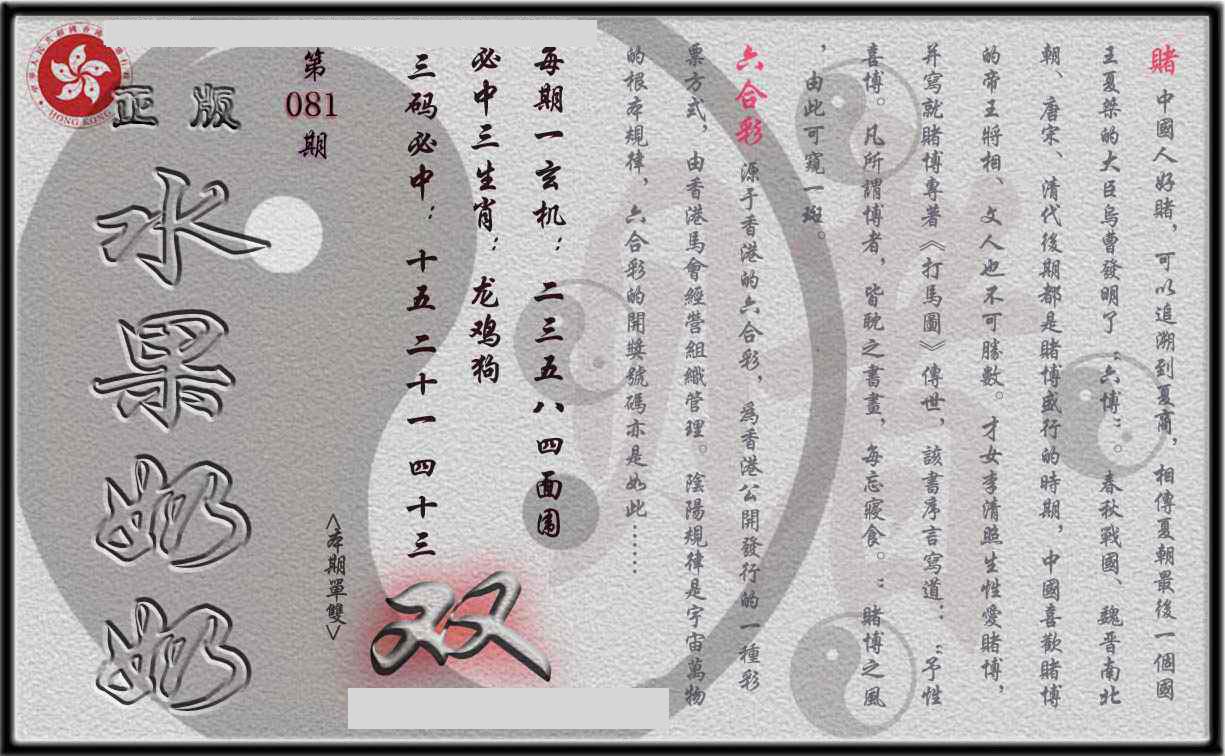 賭 中國人好賭，可以追溯到夏商，相傳夏朝最後一個國
王夏桀的大臣烏曹發明了“六博”。春秋戰國、魏晋南北
朝、唐宋、清代後期都是賭博盛行的時期，中國喜歡賭博
的帝王將相、文人也不可勝數。才女李清照生性愛賭博，
并寫就賭博專著《打馬圖》傳世，該書序言寫道：“予性
喜博。凡所謂博者，皆耽之書畫，每忘寢食。”賭博之風
，由此可窺一斑。
六合彩 源于香港的六合彩，為香港公開發行的一種彩
票方式，由香港馬會經營組織管理。陰陽規律是宇宙萬物
的根本規律，六合彩的開獎號碼亦是如此……
每期一玄机：二三五八四面围
必中三生肖：龙鸡狗
三码必中：十五二十一四十三
双
<本期單雙>
第
081
期
正版
水果奶奶
HONG KONG